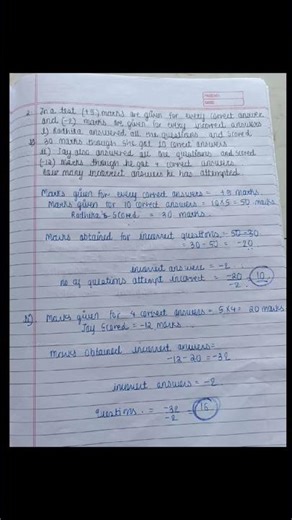 2. In a test (+5) marks are given for every correct answer
and (-2) marks are given for every incorrect answers
i) Radhika answered all the questions and scored
30 marks though she got 10 correct answers
ii) Jay also answered all the questions and scored
(-12) marks though he got 4 correct answers
How many incorrect answers he has attempted
Marks given for every correct answers = +5 marks
Marks given for 10 correct answers = 10x5 = 50 marks
Radhika's Scored = 30 marks
Marks obtained for incorrect questions = 50-30
= 30-50 = -20
incorrect answere = -2
no of questions attempt incorrect = -20/-2 10
Marks given for 4 correct answers = 5x4 = 20 marks
Jay Scored = -12 marks
Marks obtained incorrect answers =
-12-20 = -32
incorrect answers = -2
questions = -32/-2 = 16